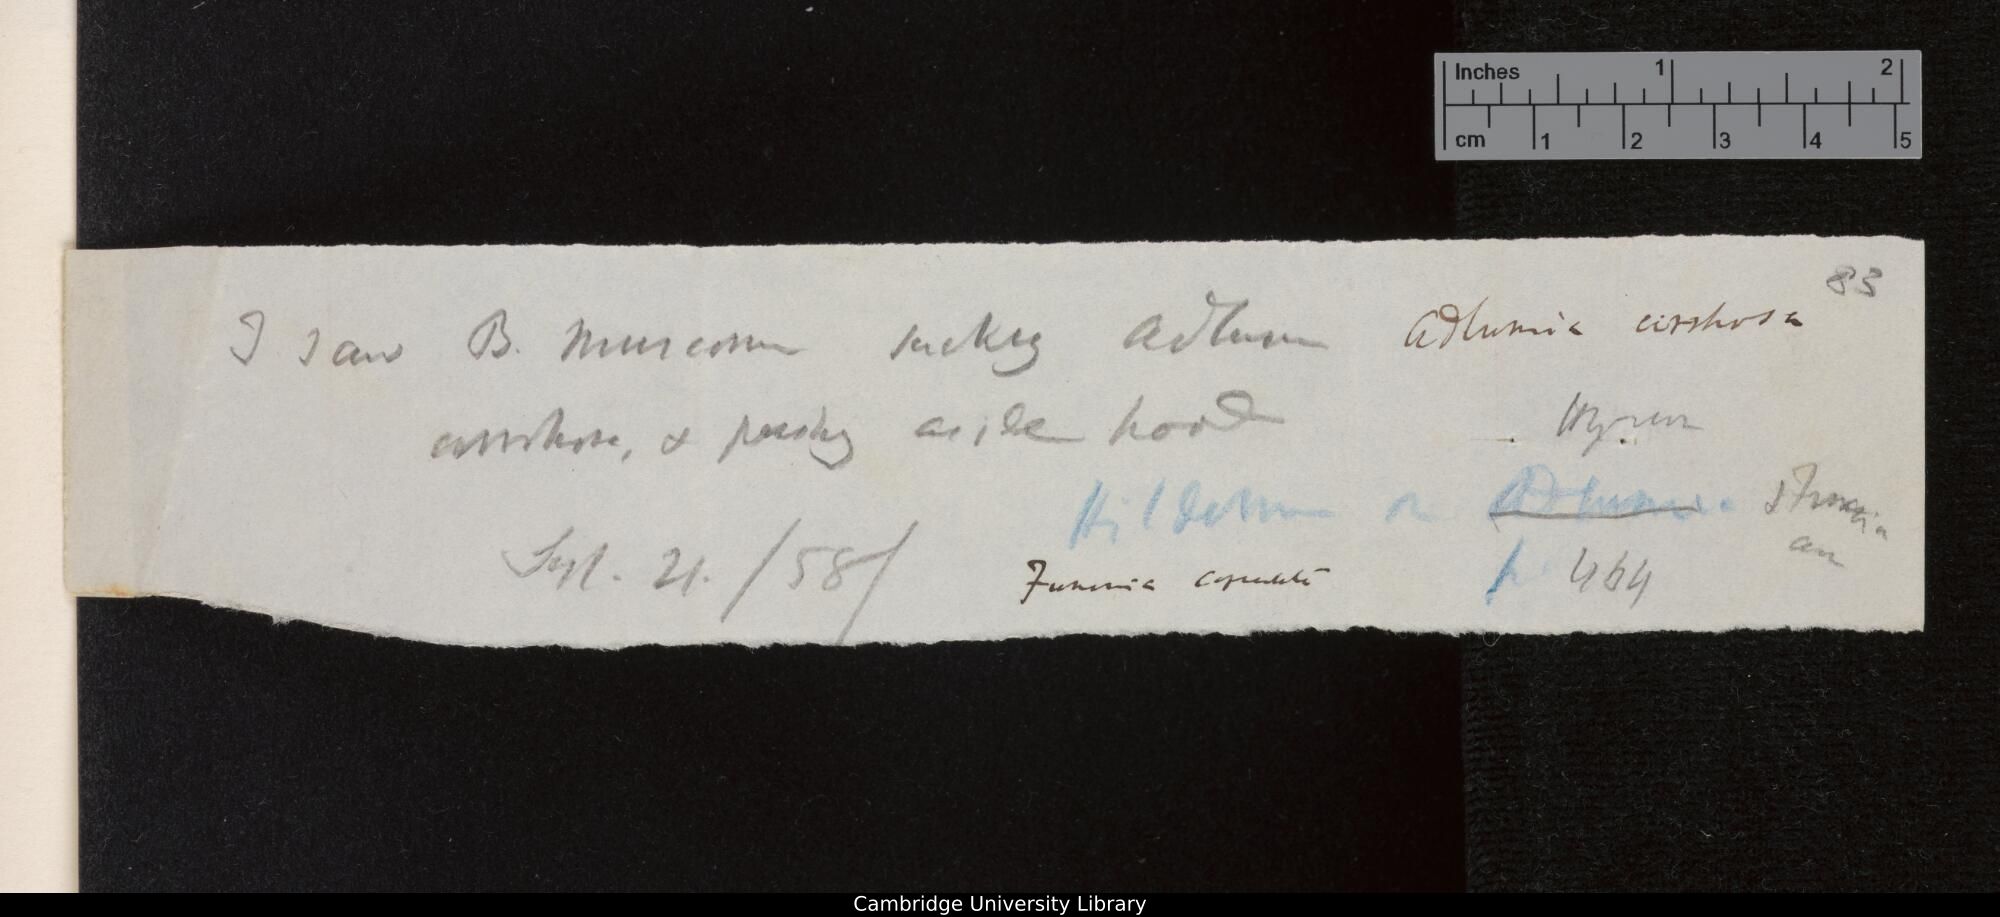 83
I saw B. Muscorum sucking Adlumia
cirrhosa, & pushing aside hood
Sept. 21. /58/
Adlumia cirrhosa
Hildebrand on Adlumia
p 464
Fumaria
Inches 1 2
cm 1 2 3 4 5
Cambridge University Library